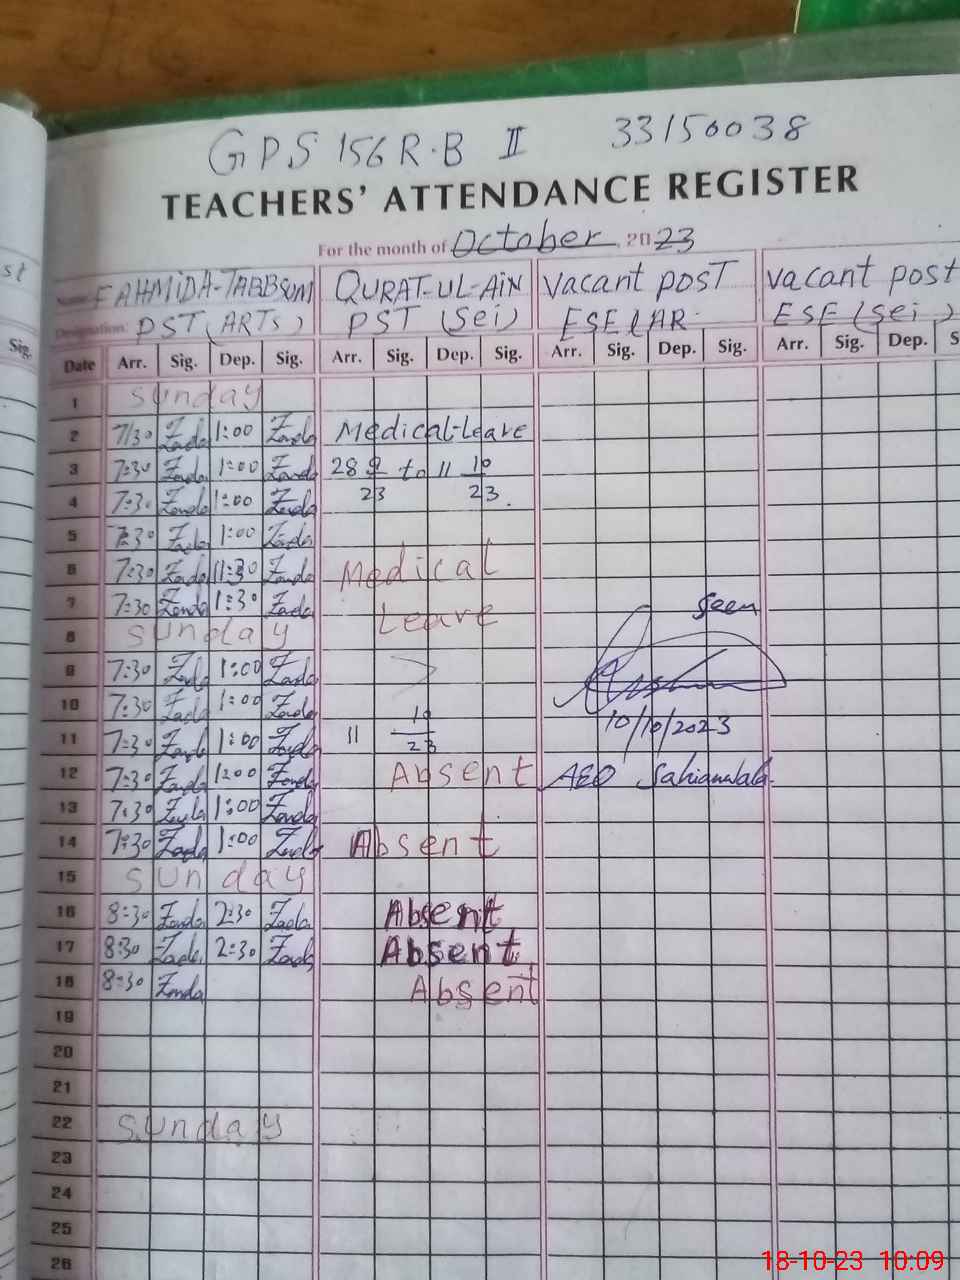 GPS 156 R.B II 33150038
TEACHERS' ATTENDANCE REGISTER
For the month of October 2023
st
Name: FAHMIDA-TABBSUM QURAT-UL-AIN Vacant post vacant post
Designation: PST (ARTs) PST (Sci) ESE (AR ESE (Sci)
Sig.
Date Arr. Sig. Dep. Sig. Arr. Sig. Dep. Sig. Arr. Sig. Dep. Sig. Arr. Sig. Dep. S
1 Sunday
2 7/30 1:00 Medical-leave
3 7:30 1:00 28 9/23 to 11 10/23.
4 7:30 1:00
5 7:30 1:00
6 7:30 11:30 Medical
7 7:30 1:30 Leave Seen
8 Sunday
9 7:30 1:00
10 7:30 1:00 10/10/2023
11 7:30 1:00 11 10/23
12 7:30 1:00 Absent AEO Sahianwala
13 7:30 1:00
14 7:30 1:00 Absent
15 Sunday
16 8:30 2:30 Absent
17 8:30 2:30 Absent
18 8:30 Absent
19
20
21
22 Sunday
23
24
25
26
18-10-23 10:09